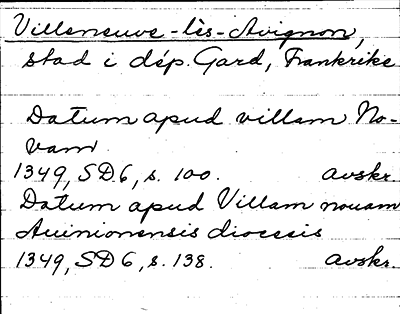 Villeneuve-lès-Avignon,
stad i dép. Gard, Frankrike
Datum apud villam No-
vam
1349, SD6, s. 100. avskr.
Datum apud Villam nouam
Auinionensis diocesis
1349, SD6, s. 138. avskr.